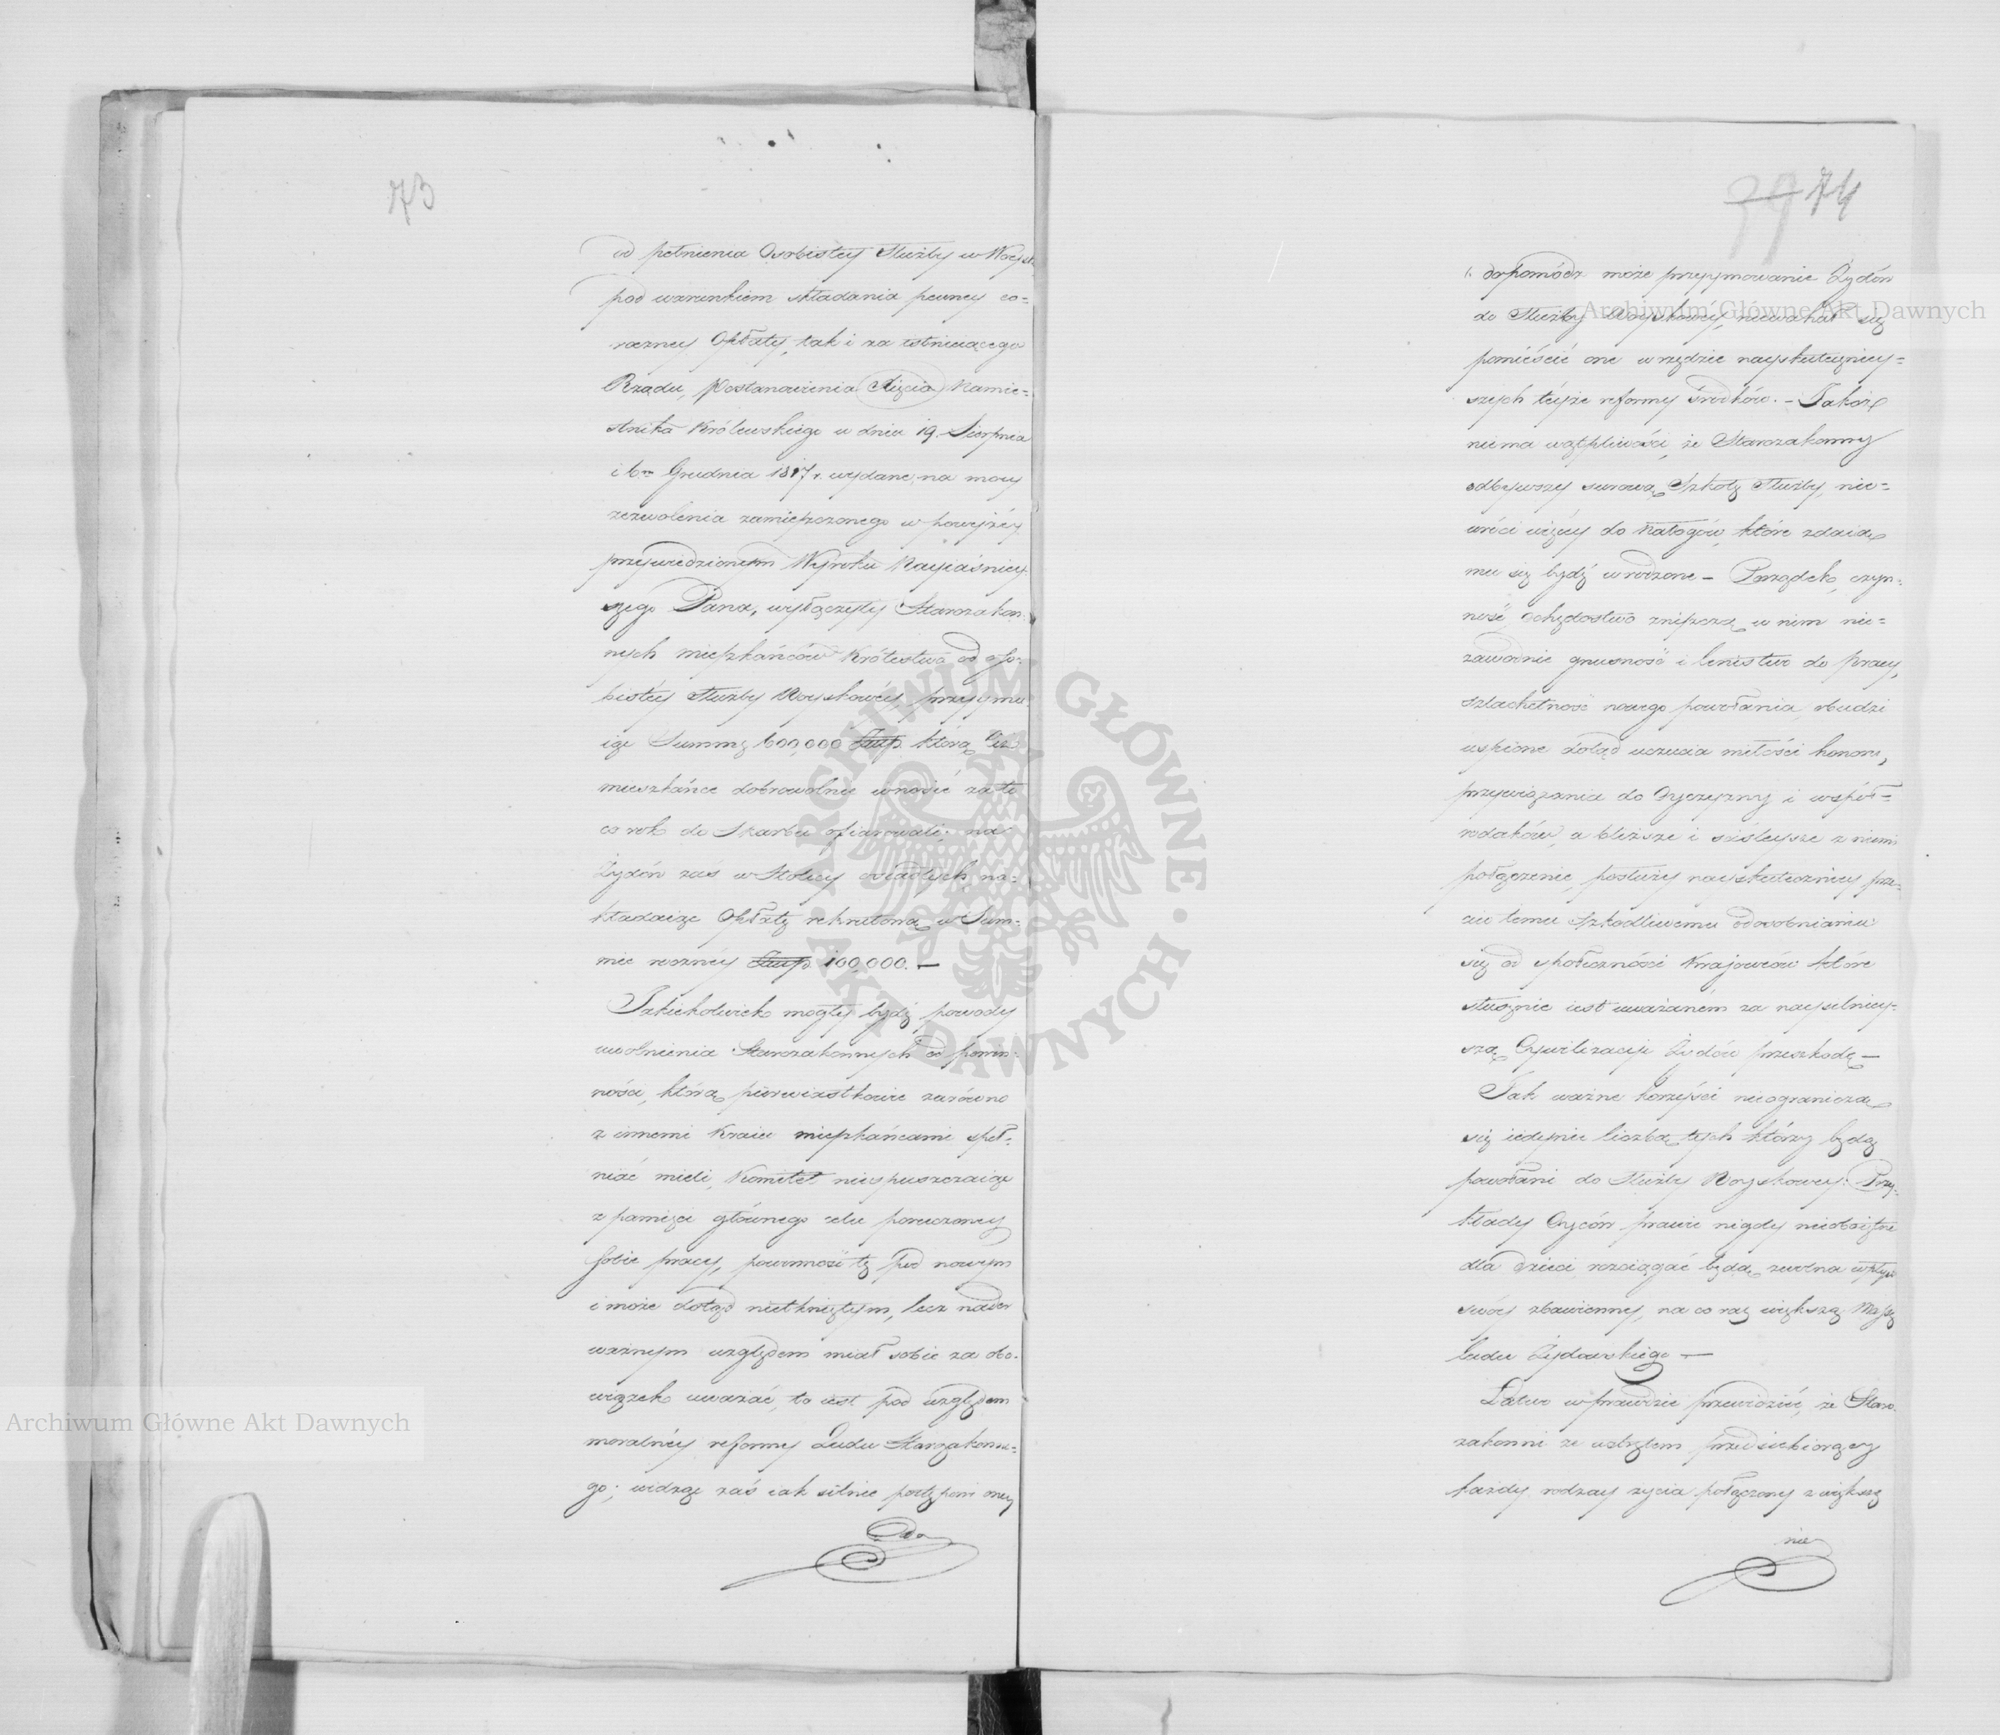 73
od pełnienia Osobistey Służby w Woysk.
pod warunkiem składania pewney co=
roczney Opłaty, tak i za istnieiącego
Rządu, Postanowienia Xięcia Namie=
stnika Królewskiego w dniu 19. Sierpnia
i Grudnia 1817 r. wydane, na mocy
zezwolenia zamieszczonego w powyżéy
przywiedzionym Wyroku Nayiaśniey
szego Pana, wyłączyły Starozakon=
nych mieszkańców Królestwa od oso=
bistéy Służby Woyskowéy, przyymu
iąc Summę 600,000 Złup. którą ciż
mieszkańce dobrowolnie wnosić za to
co rok do Skarbu ofiarowali; na
Żydów zaś w Stolicy osiadłych, na=
kładaiąc Opłatę rekrutową w Sum=
mie roczney Złup. 100,000. —
Jakiekolwiek mogły bydź powody
uwolnienia Starozakonnych od powin=
ności, którą pierwiastkowie zarówno
z innemi Kraiu mieszkańcami speł=
niać mieli, Komitet niespuszczaiąc
z pamięci głównego celu poruczoney
sobie pracy, powinność tę pod nowym
i może dotąd nietkniętym, lecz nader
ważnym względem miał sobie za obo=
wiązek uważać, to iest pod względem
moralnéy reformy Ludu Starozakonne=
go; widząc zaś iak silnie postępom oney
Do
39 74
dopomódz może przyymowanie Żydów
do Służby Woyskowéy, niewahał się
pomieścić one w rzędzie nayskuteczniey=
szych téyże reformy środków. — Jakoż
niema wątpliwości, że Starozakonny
odbywszy surową Szkołę Służby, nie=
wróci więcéy do nałogów, które zdaią
mu się bydź wrodzone — Porządek, czyn=
ność ochędostwo zniszczą w nim nie=
zawodnie gnusność i lenistwo do pracy,
szlachetność nowego powołania, obudzi
uspione dotąd uczucia miłości honoru,
przywiązania do Oyczyzny i współ=
rodaków, a bliższe i ściśleysze z niemi
połączenie, posłuży nayskuteczniey prze=
ciw temu szkodliwemu odosobnianiu
się od społeczności Kraiowców które
słusznie iest uważanem za naysilniey=
szą Cywilizacyi Żydów przeszkodę —
Tak ważne korzyści nieograniczą
się iedynie liczbą tych którzy będą
powołani do Służby Woyskowey. Przy=
kłady Oyców prawie nigdy nieoboiętne
dla dzieci rozciągać będą zwolna wpływ
swóy zbawienny, na co raz większą Massę
Ludu Żydowskiego —
Łatwo w prawdzie przewidzieć, że Staro=
zakonni ze wstrętem przedsiebiorący
każdy rodzay życia połączony z większą
nie